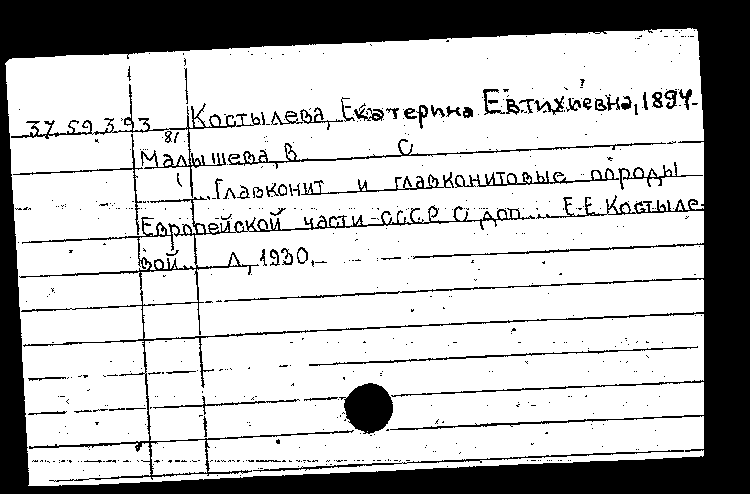 37.59.3.93 Костылева, Екатерина Евтихиевна, 1894-
81
Малышева, В С
... Глауконит и глауконитовые породы
Европейской части СССР С доп... Е.Е. Костыле-
вой... Л, 1930,